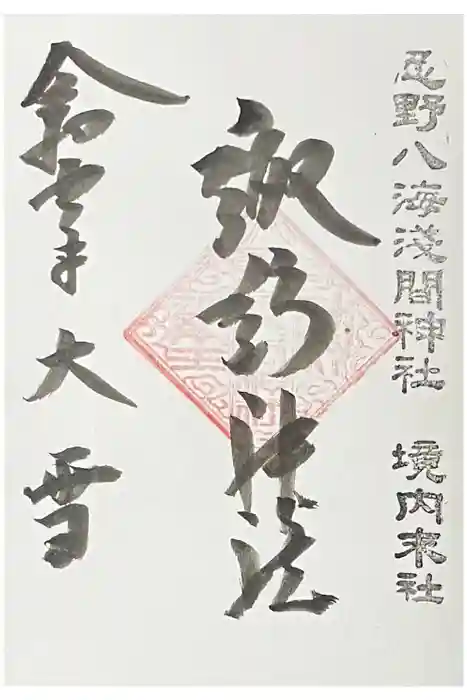 忍野八海浅間神社 境内末社
諏訪神社
令和七年 大雪